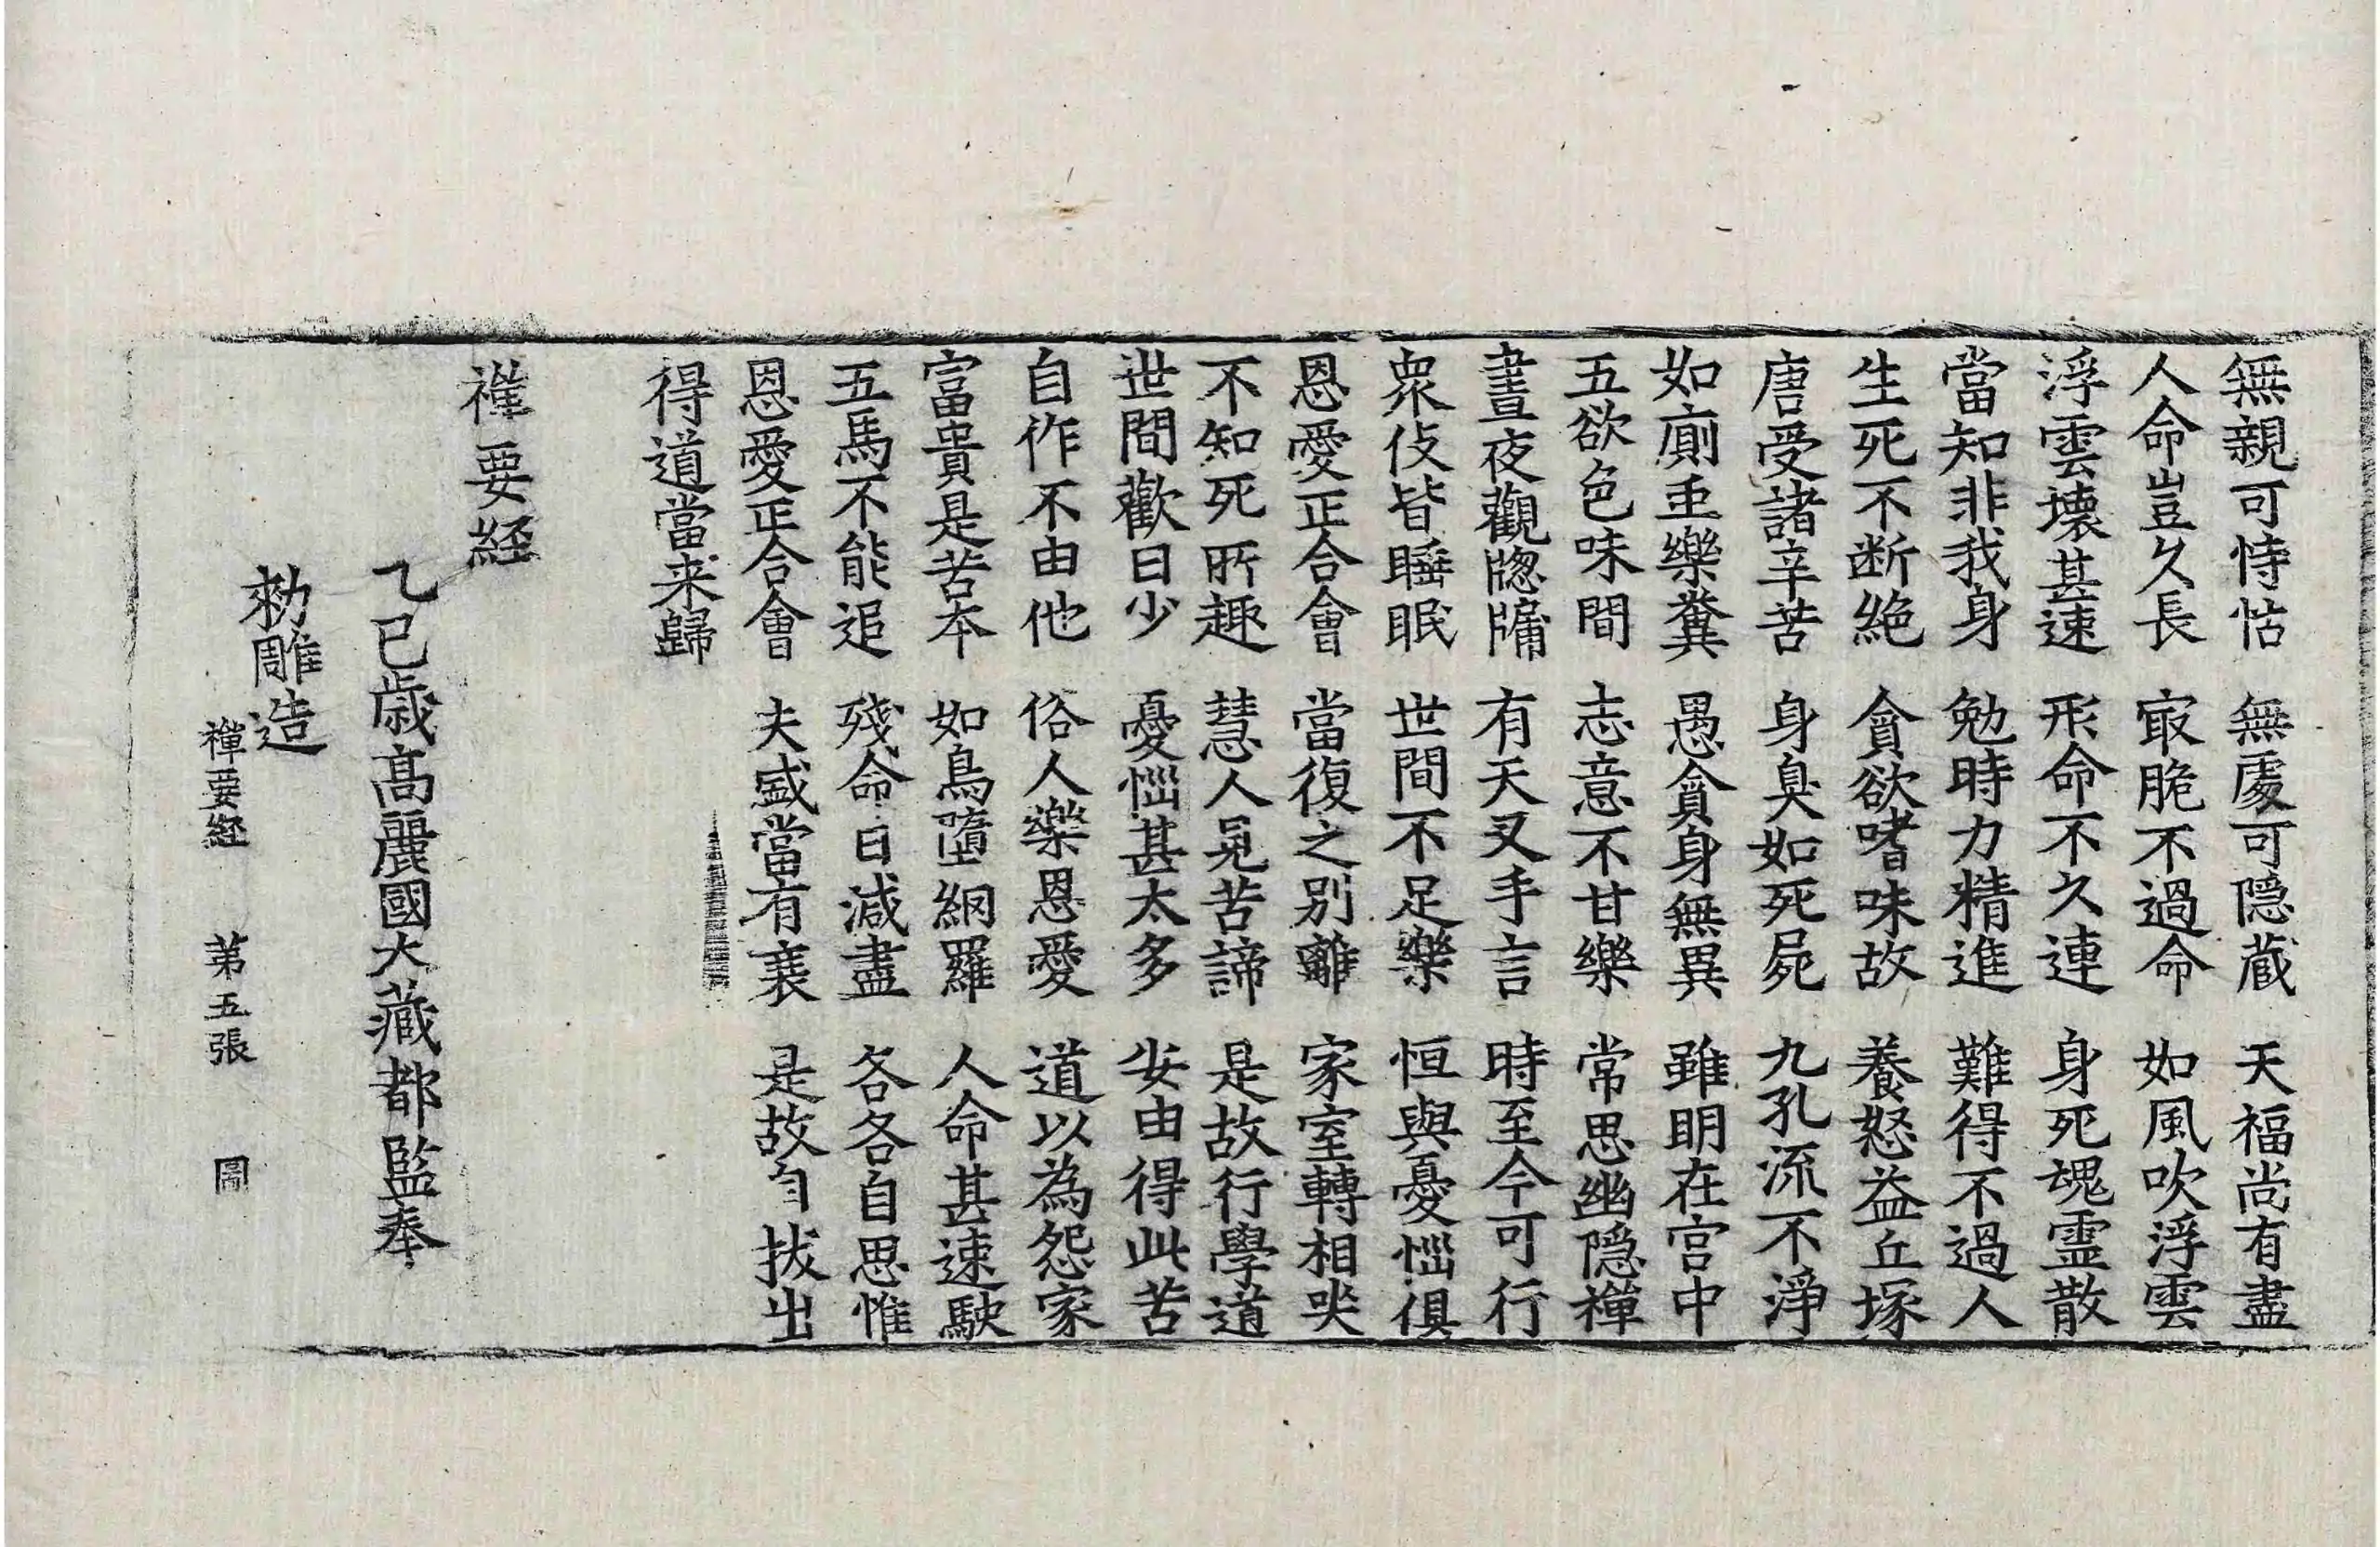 無親可恃怙 無處可隱蔵 天福尚有盡
人命豈久長 㝡脆不過命 如風吹浮雲
浮雲壊甚速 形命不久連 身死魂霊散
當知非我身 勉時力精進 難得不過人
生死不断絶 貪欲嗜味故 養怒益丘塚
唐受諸辛苦 身臭如死屍 九孔流不淨
如廁虫樂糞 愚貪身無異 雖明在宫中
五欲色味間 志意不甘樂 常思幽隠禪
晝夜觀牎牗 有天叉手言 時至今可行
衆伎皆睡眠 世間不足樂 恒與憂惱俱
恩愛正合會 當復之別離 家室轉相哭
不知死所趣 慧人見苦諦 是故行學道
世間歡日少 憂惱甚太多 安由得此苦
自作不由他 俗人樂恩愛 道以為怨家
富貴是苦本 如鳥墮網羅 人命甚速駛
五馬不能追 殘命日減盡 各各自思惟
恩愛正合會 夫盛當有衰 是故自拔出
得道當来歸
禪要経
乙巳歳髙麗國大藏都監奉
勑雕造
禪要経 苐五張 啚